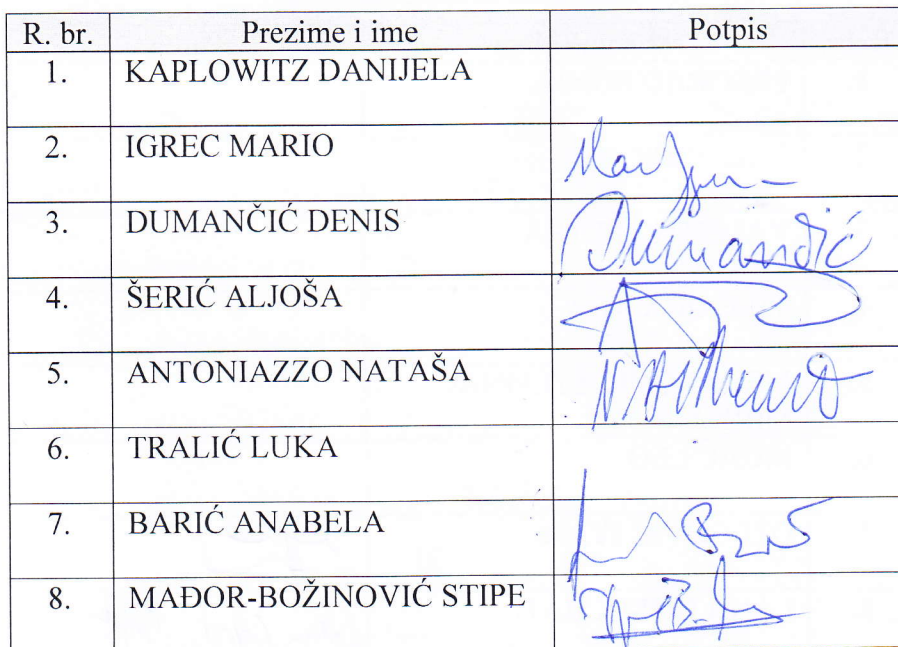 R. br. Prezime i ime Potpis
1. KAPLOWITZ DANIJELA
2. IGREC MARIO
3. DUMANČIĆ DENIS Dumančić
4. ŠERIĆ ALJOŠA
5. ANTONIAZZO NATAŠA
6. TRALIĆ LUKA
7. BARIĆ ANABELA
8. MAĐOR-BOŽINOVIĆ STIPE